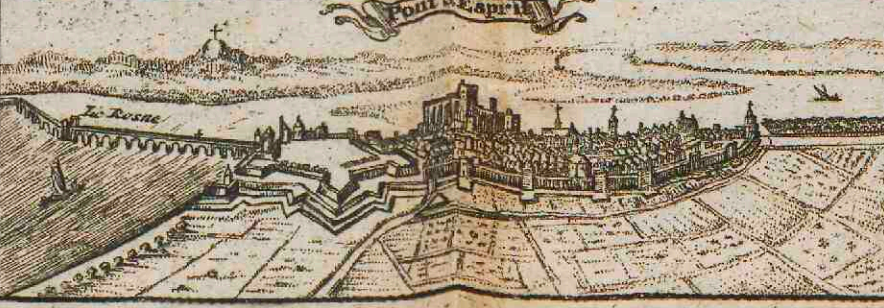 Pont S. Esprit
Le Rosne